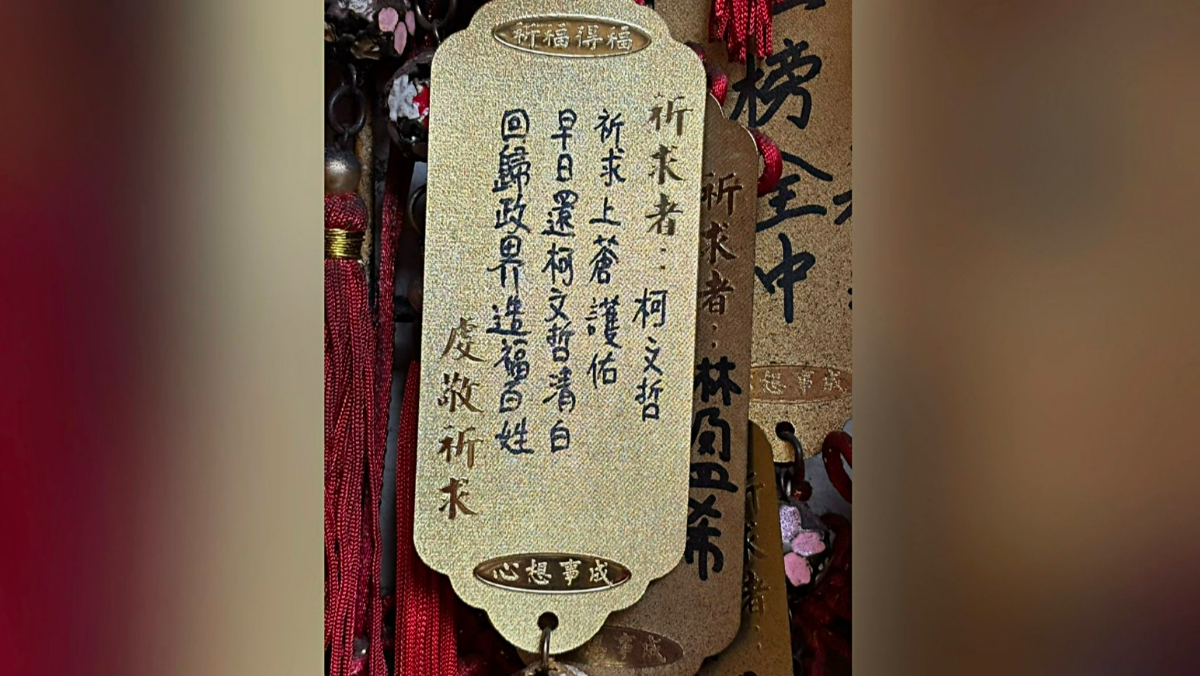 祈福得福
祈求者：柯文哲
祈求上蒼護佑
早日還柯文哲清白
回歸政界造福百姓
虔敬祈求
心想事成
祈求者：林盈希
事成
榜全中
想事成
祈求者：